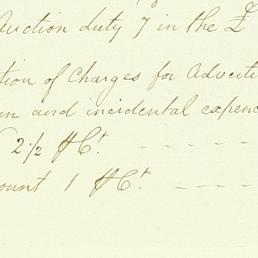 Auction duty 7 in the £
tion of Charges for Adverti
an and incidental expenc
2 1/2 ⅌ Ct. - - - - -
ount 1 ⅌ Ct. - - - -